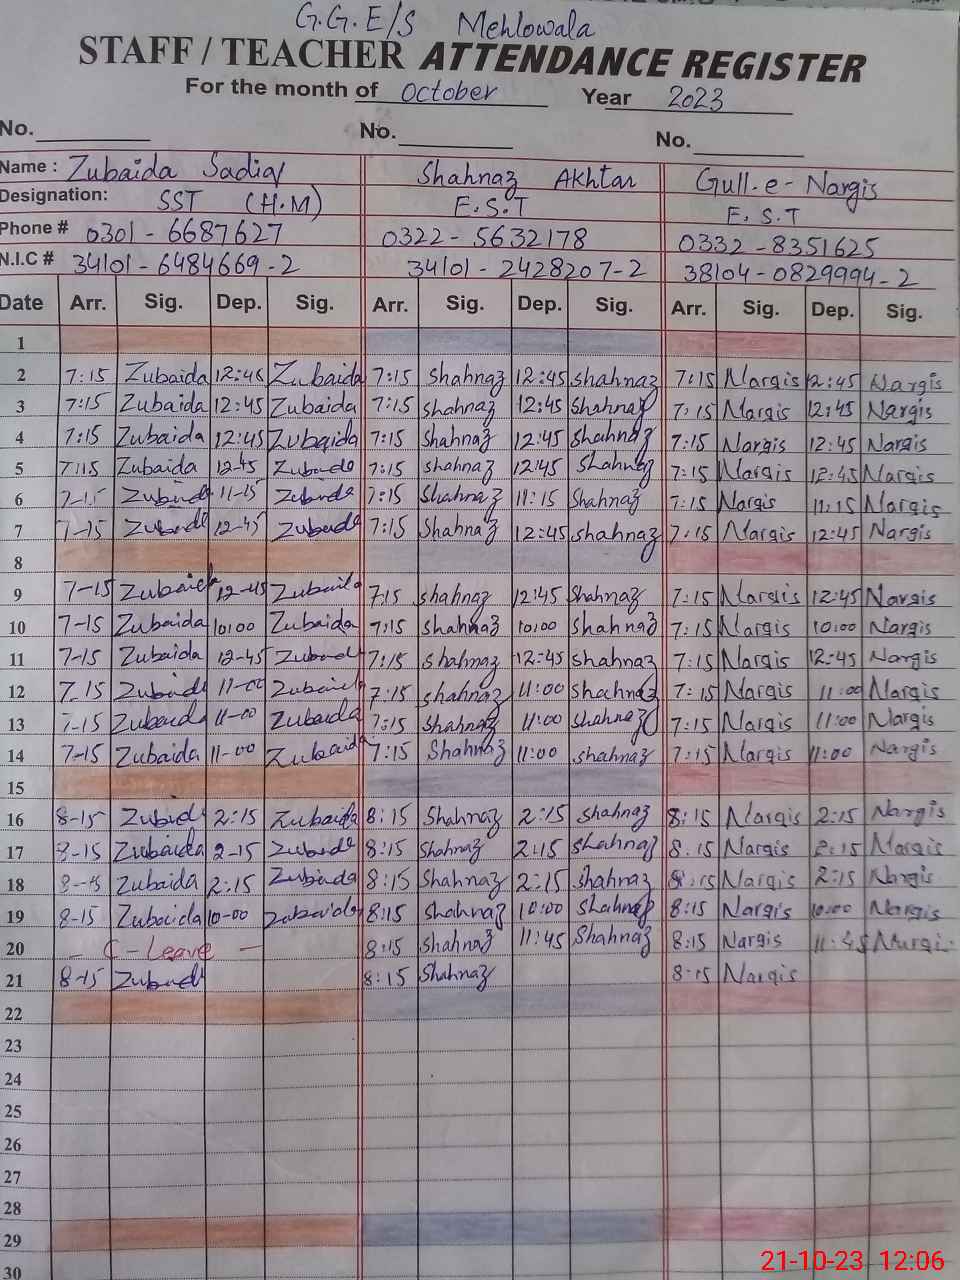 G.G.E/S Mehlowala
STAFF / TEACHER ATTENDANCE REGISTER
For the month of October Year 2023
No. No. No.
Name : Zubaida Sadiq Shahnaz Akhtar Gull-e-Nargis
Designation: SST (H.M) E.S.T E.S.T
Phone # 0301-6687627 0322-5632178 0332-8351625
N.I.C # 34101-6484669-2 34101-2428207-2 38104-0829994-2
Date Arr. Sig. Dep. Sig. Arr. Sig. Dep. Sig. Arr. Sig. Dep. Sig.
1
2 7:15 Zubaida 12:45 Zubaida 7:15 Shahnaz 12:45 shahnaz 7:15 Nargis 12:45 Nargis
3 7:15 Zubaida 12:45 Zubaida 7:15 shahnaz 12:45 Shahnaz 7:15 Nargis 12:45 Nargis
4 7:15 Zubaida 12:45 Zubaida 7:15 Shahnaz 12:45 Shahnaz 7:15 Nargis 12:45 Nargis
5 7:15 Zubaida 12-45 Zubaida 7:15 shahnaz 12:45 Shahnaz 7:15 Nargis 12:45 Nargis
6 7-15 Zubaida 11-15 Zubaida 7:15 Shahnaz 11:15 Shahnaz 7:15 Nargis 11:15 Nargis
7 7-15 Zubaida 12-45 Zubaida 7:15 Shahnaz 12:45 shahnaz 7:15 Nargis 12:45 Nargis
8
9 7-15 Zubaida 12-45 Zubaida 7:15 shahnaz 12:45 Shahnaz 7:15 Nargis 12:45 Nargis
10 7-15 Zubaida 10:00 Zubaida 7:15 shahnaz 10:00 shahnaz 7:15 Nargis 10:00 Nargis
11 7-15 Zubaida 12-45 Zubaida 7:15 shahnaz 12:45 shahnaz 7:15 Nargis 12:45 Nargis
12 7-15 Zubaida 11-00 Zubaida 7:15 shahnaz 11:00 shahnaz 7:15 Nargis 11:00 Nargis
13 7-15 Zubaida 11-00 Zubaida 7:15 Shahnaz 11:00 shahnaz 7:15 Nargis 11:00 Nargis
14 7-15 Zubaida 11-00 Zubaida 7:15 Shahnaz 11:00 shahnaz 7:15 Nargis 11:00 Nargis
15
16 8-15 Zubaida 2:15 Zubaida 8:15 Shahnaz 2:15 shahnaz 8:15 Nargis 2:15 Nargis
17 8-15 Zubaida 2-15 Zubaida 8:15 Shahnaz 2:15 shahnaz 8:15 Nargis 2:15 Nargis
18 8-15 Zubaida 2:15 Zubaida 8:15 Shahnaz 2:15 shahnaz 8:15 Nargis 2:15 Nargis
19 8-15 Zubaida 10-00 Zubaida 8:15 shahnaz 10:00 shahnaz 8:15 Nargis 10:00 Nargis
20 - C-Leave - 8:15 shahnaz 11:45 Shahnaz 8:15 Nargis 11:45 Nargis
21 8-15 Zubaida 8:15 Shahnaz 8:15 Nargis
22
23
24
25
26
27
28
29
30
21-10-23 12:06